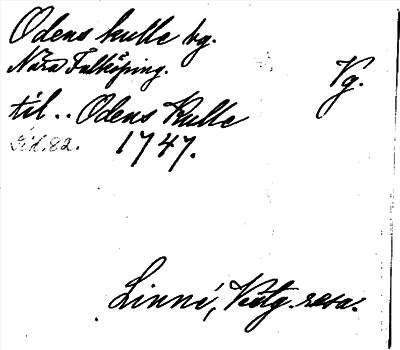 Odens kulle bg.
Nära Falköping.
Vg.
til.. Odens Kulle
Sid. 82. 1747.
Linné, Västg. resa.